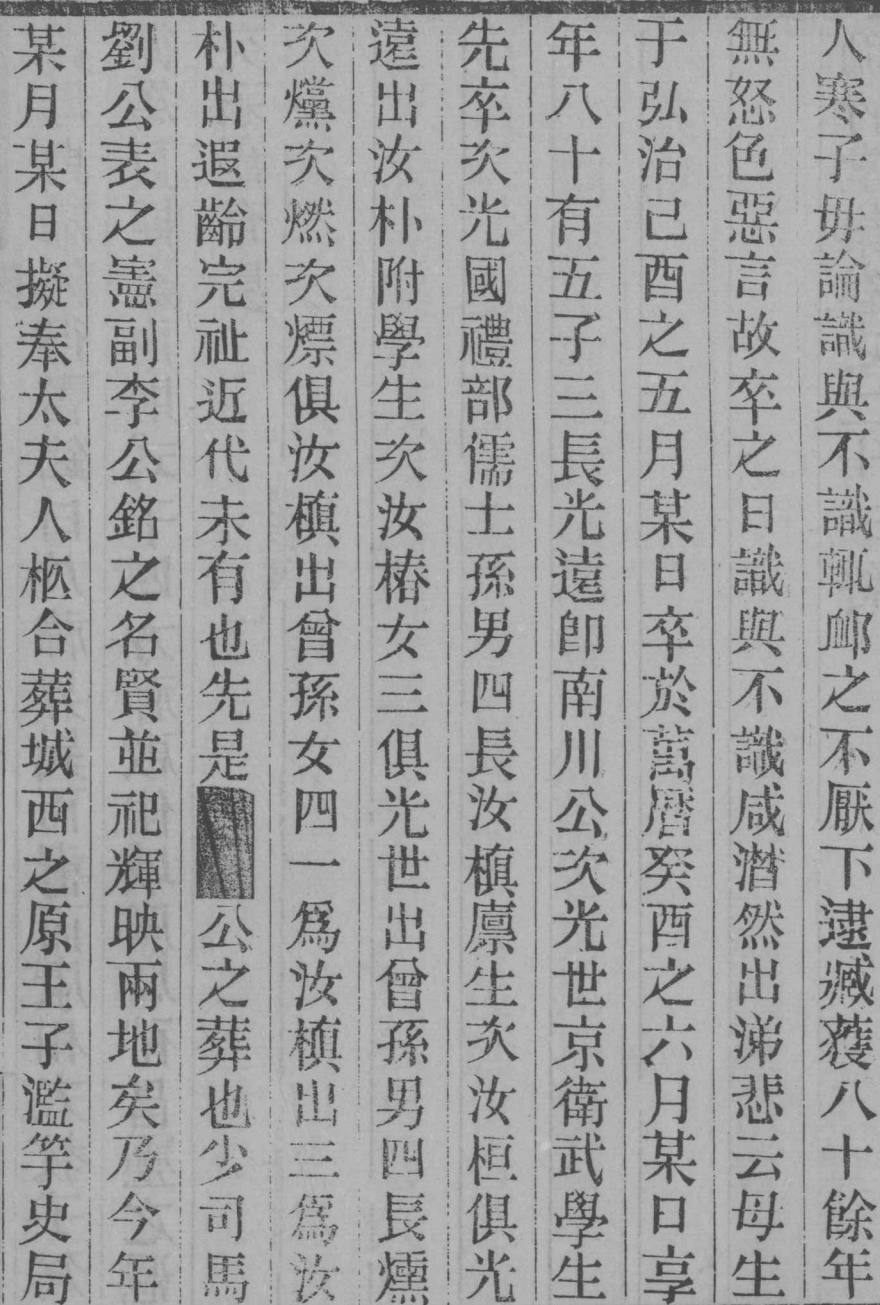 人寒子毋論識與不識輒卹之不厭下逮臧獲八十餘年
無怒色惡言故卒之日識與不識咸潸然出涕悲云母生
于弘治己酉之五月某日卒於萬曆癸酉之六月某日享
年八十有五子三長光遠卽南川公次光世京衛武學生
先卒次光國禮部儒士孫男四長汝槙廪生次汝桓俱光
遠出汝朴附學生次汝椿女三俱光世出曾孫男四長燻
次爣次燃次熛俱汝槙出曾孫女四一爲汝槙出三爲汝
朴出遐齡完祉近代未有也先是公之葬也少司馬
劉公表之憲副李公銘之名賢並祀輝映兩地矣乃今年
某月某日擬奉太夫人柩合葬城西之原王子濫竽史局